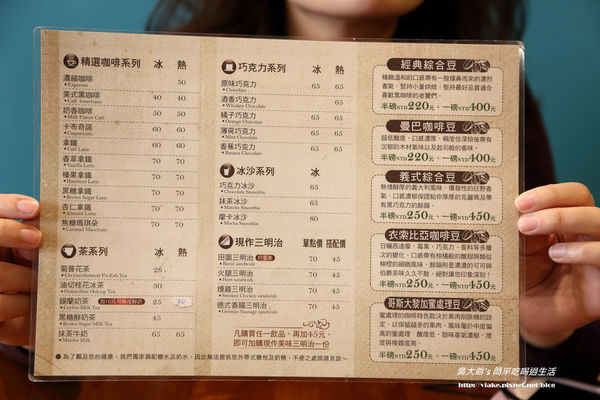 精選咖啡系列 冰 熱
濃縮咖啡 50
•Espresso
美式黑咖啡 40 40
•Café Americano
奶香咖啡 50 50
•Milk Flavor Café
卡布奇諾 60 60
•Cappuccino
拿鐵 60 60
•Café Latte
香草拿鐵 70 70
•Vanilla Latte
榛果拿鐵 70 70
•Hazelnut Latte
黑糖拿鐵 70 70
•Brown Sugar Latte
杏仁拿鐵 70 70
•Almond Latte
焦糖瑪琪朵 70 70
•Caramel Macchiato
茶系列 冰 熱
菊普花茶 25
•Chrysanthemum Pu-Erh Tea
油切桂花冰茶 30
•Osmanthus Oolong Tea
錫蘭奶茶 加10元可換成鮮奶 25 30
•Ceylon Milk Tea
黑糖鮮奶茶 45
•Brown Sugar Milk Tea
抹茶牛奶 65 65
•Matcha Milk
巧克力系列 冰 熱
原味巧克力 65 65
•Chocolate
酒香巧克力 65
•Whisky Chocolate
橘子巧克力 65 65
•Orange Chocolate
薄荷巧克力 65 65
•Mint Chocolate
香蕉巧克力 65 65
•Banana Chocolate
冰沙系列 冰
巧克力冰沙 65
•Chocolate Smoothie
抹茶冰沙 65
•Matcha Smoothie
摩卡冰沙 80
•Mocha Smoothie
現作三明治 單點價 搭配價
田園三明治
•Rural sandwich
火腿三明治
•Ham sandwich
燻雞三明治
•Smoked Chicken sandwich
德式香腸三明治
•Germany Sausage sandwich
凡購買任一飲品，再加45元，
即可加購現作美味三明治一份
●為了顧及您的健康，我們獨家調配糖水及奶水，因此無法提供您外帶式糖包及奶糖，不便之處煩請見諒~
經典綜合豆
精緻溫和的口感帶有一股撲鼻而來的濃烈
香氣。堅持小量烘焙、堅持最好品質適合
喜歡黑咖啡的老饕們。
半磅NTD220元．一磅NTD400元
曼巴咖啡豆
超低酸度、口感濃厚、稠度佳深焙後帶有
沉郁的木材氣味以及起司般的香味。
半磅NTD220元．一磅NTD400元
義式綜合豆
熱情醇厚的義大利風味，爆發性的狂野香
氣、口感濃郁保證給你厚厚的克麗瑪及帶
有黑巧克力的餘韻。
半磅NTD250元．一磅NTD450元
衣索比亞咖啡豆
日曬西達摩、莓果、巧克力、香料等多層
次的變化、口感帶有柑橘般的酸甜與類似
柳橙的細緻風味，餘韻則是濃濃的可可與
伯爵茶味久久不散，絕對讓您印象深刻！
半磅NTD250元．一磅NTD450元
哥斯大黎加蜜處理豆
蜜處理的咖啡特色取決於果肉刮除機的設
定，以保留越多的果肉。風味屬於中度偏
高的蜜處理，酸度低、甜味香氣濃郁，厚
度與稠度兼具。
半磅NTD250元．一磅NTD450元
吳大爺's 簡單吃喝過生活
http://vlake.pixnet.net/blog